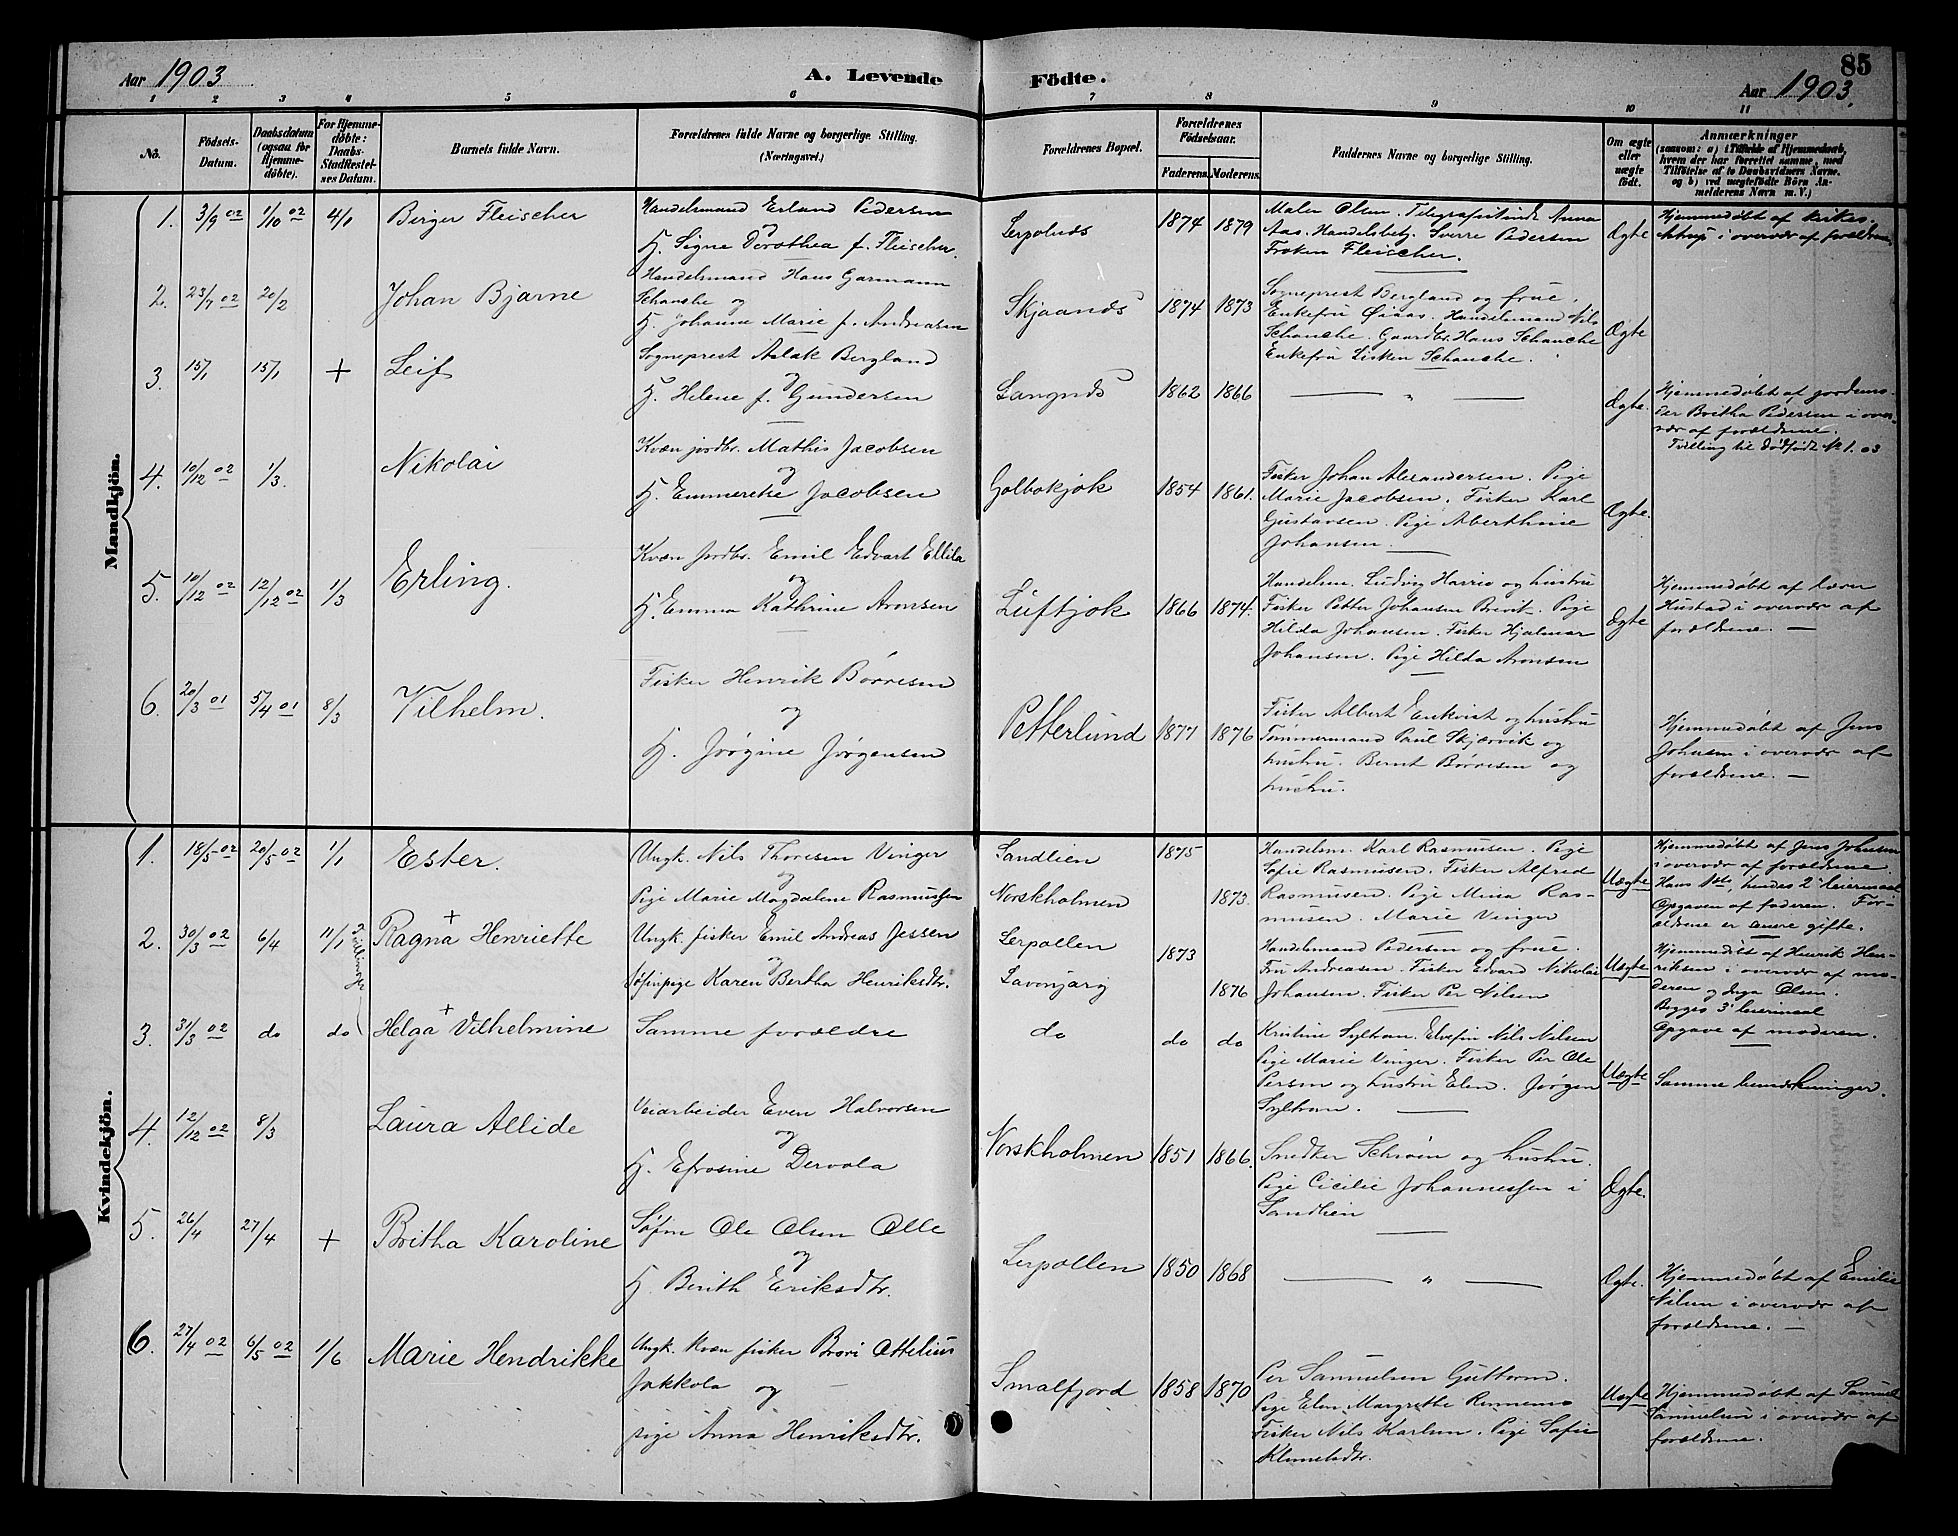 Aar 1903 A. Levende Födte. Aar 1903. 85
1 2 3 4 5 6 7 8 9 10 11
No. Födsels-Datum. Daabsdatum (ogsaa for Hjemmedöbte). For Hjemmedöbte: Daabs-Stadfestelsens Datum. Barnets fulde Navn. Forældrenes fulde Navne og borgerlige Stilling. (Næringsvei.) Forældrenes Bopæl. Forældrenes Födselsaar. Faderens. Moderens. Faddernes Navne og borgerlige Stilling. Om ægte eller uægte födt. Anmærkninger
Mandkjön.
1. 3/9 02 1/10 02 4/1 Berger Fleischer
Handelsmand Erland Pedersen
og
H. Signe Dorothea f. Fleischer.
Lerpolnds 1874 1879
Maler Olsen. Telegrafistinde Anna
Aas. Handelsbetj. Sverre Pedersen
Frøken Fleischer.
Ægte
Hjemmedøbt af kirkes.
i overvær af forældrene
2. 23/7 02 20/2 Johan Bjarne
Handelsmand Hans Garmann
Schanche og
H. Johanne Marie f. Andreasen
Skjaands 1874 1873
Sogneprest Bergland og frue.
Enkefru Øiaas. Handelsmand Nils
Schanche. Gaardbr. Hans Schanche
Enkefru Lisken Schanche.
Ægte
3. 15/1 15/1 + Leif
Sogneprest Aslak Bergland
og
H. Helene f. Gundersen
Langnds 1862 1866
— " —
Ægte.
Hjemmedøbt af jordemo-
der Britha Pedersen i over-
vær af forældrene.
Tvilling til dødfødt No 1. 03
4. 10/12 02 1/3. Nikolai
Kvæn jordbr. Mathis Jacobsen
og
H. Emmerette Jacobsen
Golbokjok 1854 1861.
Fisker Johan Alexandersen. Pige
Marie Jacobsen. Fisker Karl
Gustavsen. Pige Aberthine
Johansen.
Ægte.
5. 10/12 02 12/12 02 1/3 Erling.
Kvæn Jordbr. Emil Edvart Ellila
og
H. Emma Kathrine Aronsen
Luftjok 1866 1874.
Handelsm. Ludvig Harrio og hustru
Fisker Petter Johansen Brevit. Pige
Hilda Johansen. Fisker Hjalmar
Johansen. Pige Hilda Aronsen
Ægte
Hjemmedøbt af lærer
Hustad i overvær af
forældrene. —
6. 20/3 01 5/4 01 8/3 Vilhelm.
Fisker Henrik Børresen
og
H. Jørgine Jørgensen
Petterlund 1877 1876
Fisker Albert Enkvist og hustru
Tømmermand Paul Skjærvik og
hustru. Bernt Børresen og
hustru.
Hjemmedøbt af Jens
Johnsen i overvær af
forældrene. —
Kvindekjön.
1. 18/5 02 20/5 02 1/1 Ester.
Ungk. Nils Thoresen Vinger
og
Pige Marie Magdalene Rasmussen
Sandlien 1875
Norskholmen 1873.
Handelsm. Karl Rasmussen. Pige
Sofie Rasmussen. Fisker Alfred
Rasmussen. Pige Mina Ras-
mussen. Marie Vinger
Uægte
Hjemmedøbt af Jens Johnsen
i overvær af forældrene
Hans 1ste, hendes 2det leiermaal
Opgaven af faderen. For-
ældrene er senere gifte.
2. 30/3 02 6/4 11/1 Tvillinger Ragna + Henriette
Ungk. fisker Emil Andreas Jessen
og
Søfinpige Karen Bertha Henriksdtr.
Lerpollen 1873
Lavonjarg 1876
Handelsmand Pedersen og frue.
Fru Andreasen. Fisker Edvard Nikolai
Johansen. Fisker Per Nilsen
Uægte
Hjemmedøbt af Henrik Hen-
riksen i overvær af mo-
deren og Inga Olsen.
Begges 3die leiermaal
Opgave af moderen.
3. 31/3 02 do do Helga + Vilhelmine
Samme forældre
do do do
Kristine Syltvan. Elvefin Nils Nilsen
Pige Marie Vinger. Fisker Per Ole
Persen og hustru Elen. Jørgen
Syltvan.
Uægte
Samme bemærkninger.
4. 12/12 02 8/3 Laura Allide
Veiarbeider Even Halvorsen
og
H. Efrosine Dervola
Norskholmen 1851 1866.
Snedker Schrøen og hustru.
Pige Cicilie Johannessen i
Sandlien
Ægte.
5. 26/4 27/4 + Britha Karoline
Søfin Ole Olsen Olle
og
H. Berith Eriksdtr.
Lerpollen 1850 1868
— " —
Ægte.
Hjemmedøbt af Emilie
Nilsen i overvær af
forældrene. —
6. 27/4 02 6/5 02 1/6 Marie Hendrikke
Ungk. kvæn fisker Brori Ottelius
Jakkola og
pige Anna Henriksdtr.
Smalfjord 1858 1870
Per Samuelsen Guttorm.
Pige Elen Margrethe
Fisker Nils Karlsen. Pige Sofie
Klemetsdtr.
Uægte
Hjemmedøbt af Samuel
Samuelsen i overvær af
forældrene.